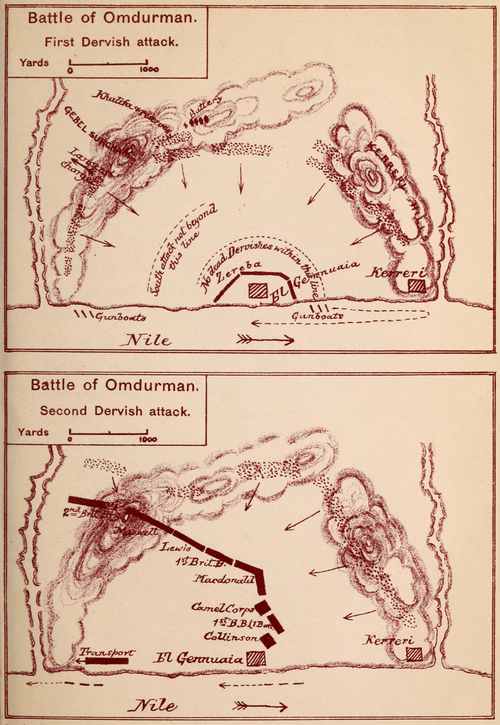 Battle of Omdurman.
First Dervish attack.
Yards
0
1000
Battery
GEBEL SURGHAM
KERERI
South attack not beyond
this line
No dead Dervishes within this line
Zereba
El Gennuaia
Kerreri
Gunboats
Gunboats
Nile
Battle of Omdurman.
Second Dervish attack.
Yards
0
1000
2nd Brit.
Maxwell
Lewis
1st Brit. B.
Macdonald
Camel Corps
1st B.B. (1 Bn.
Collinson
Transport
El Gennuaia
Kerreri
Nile